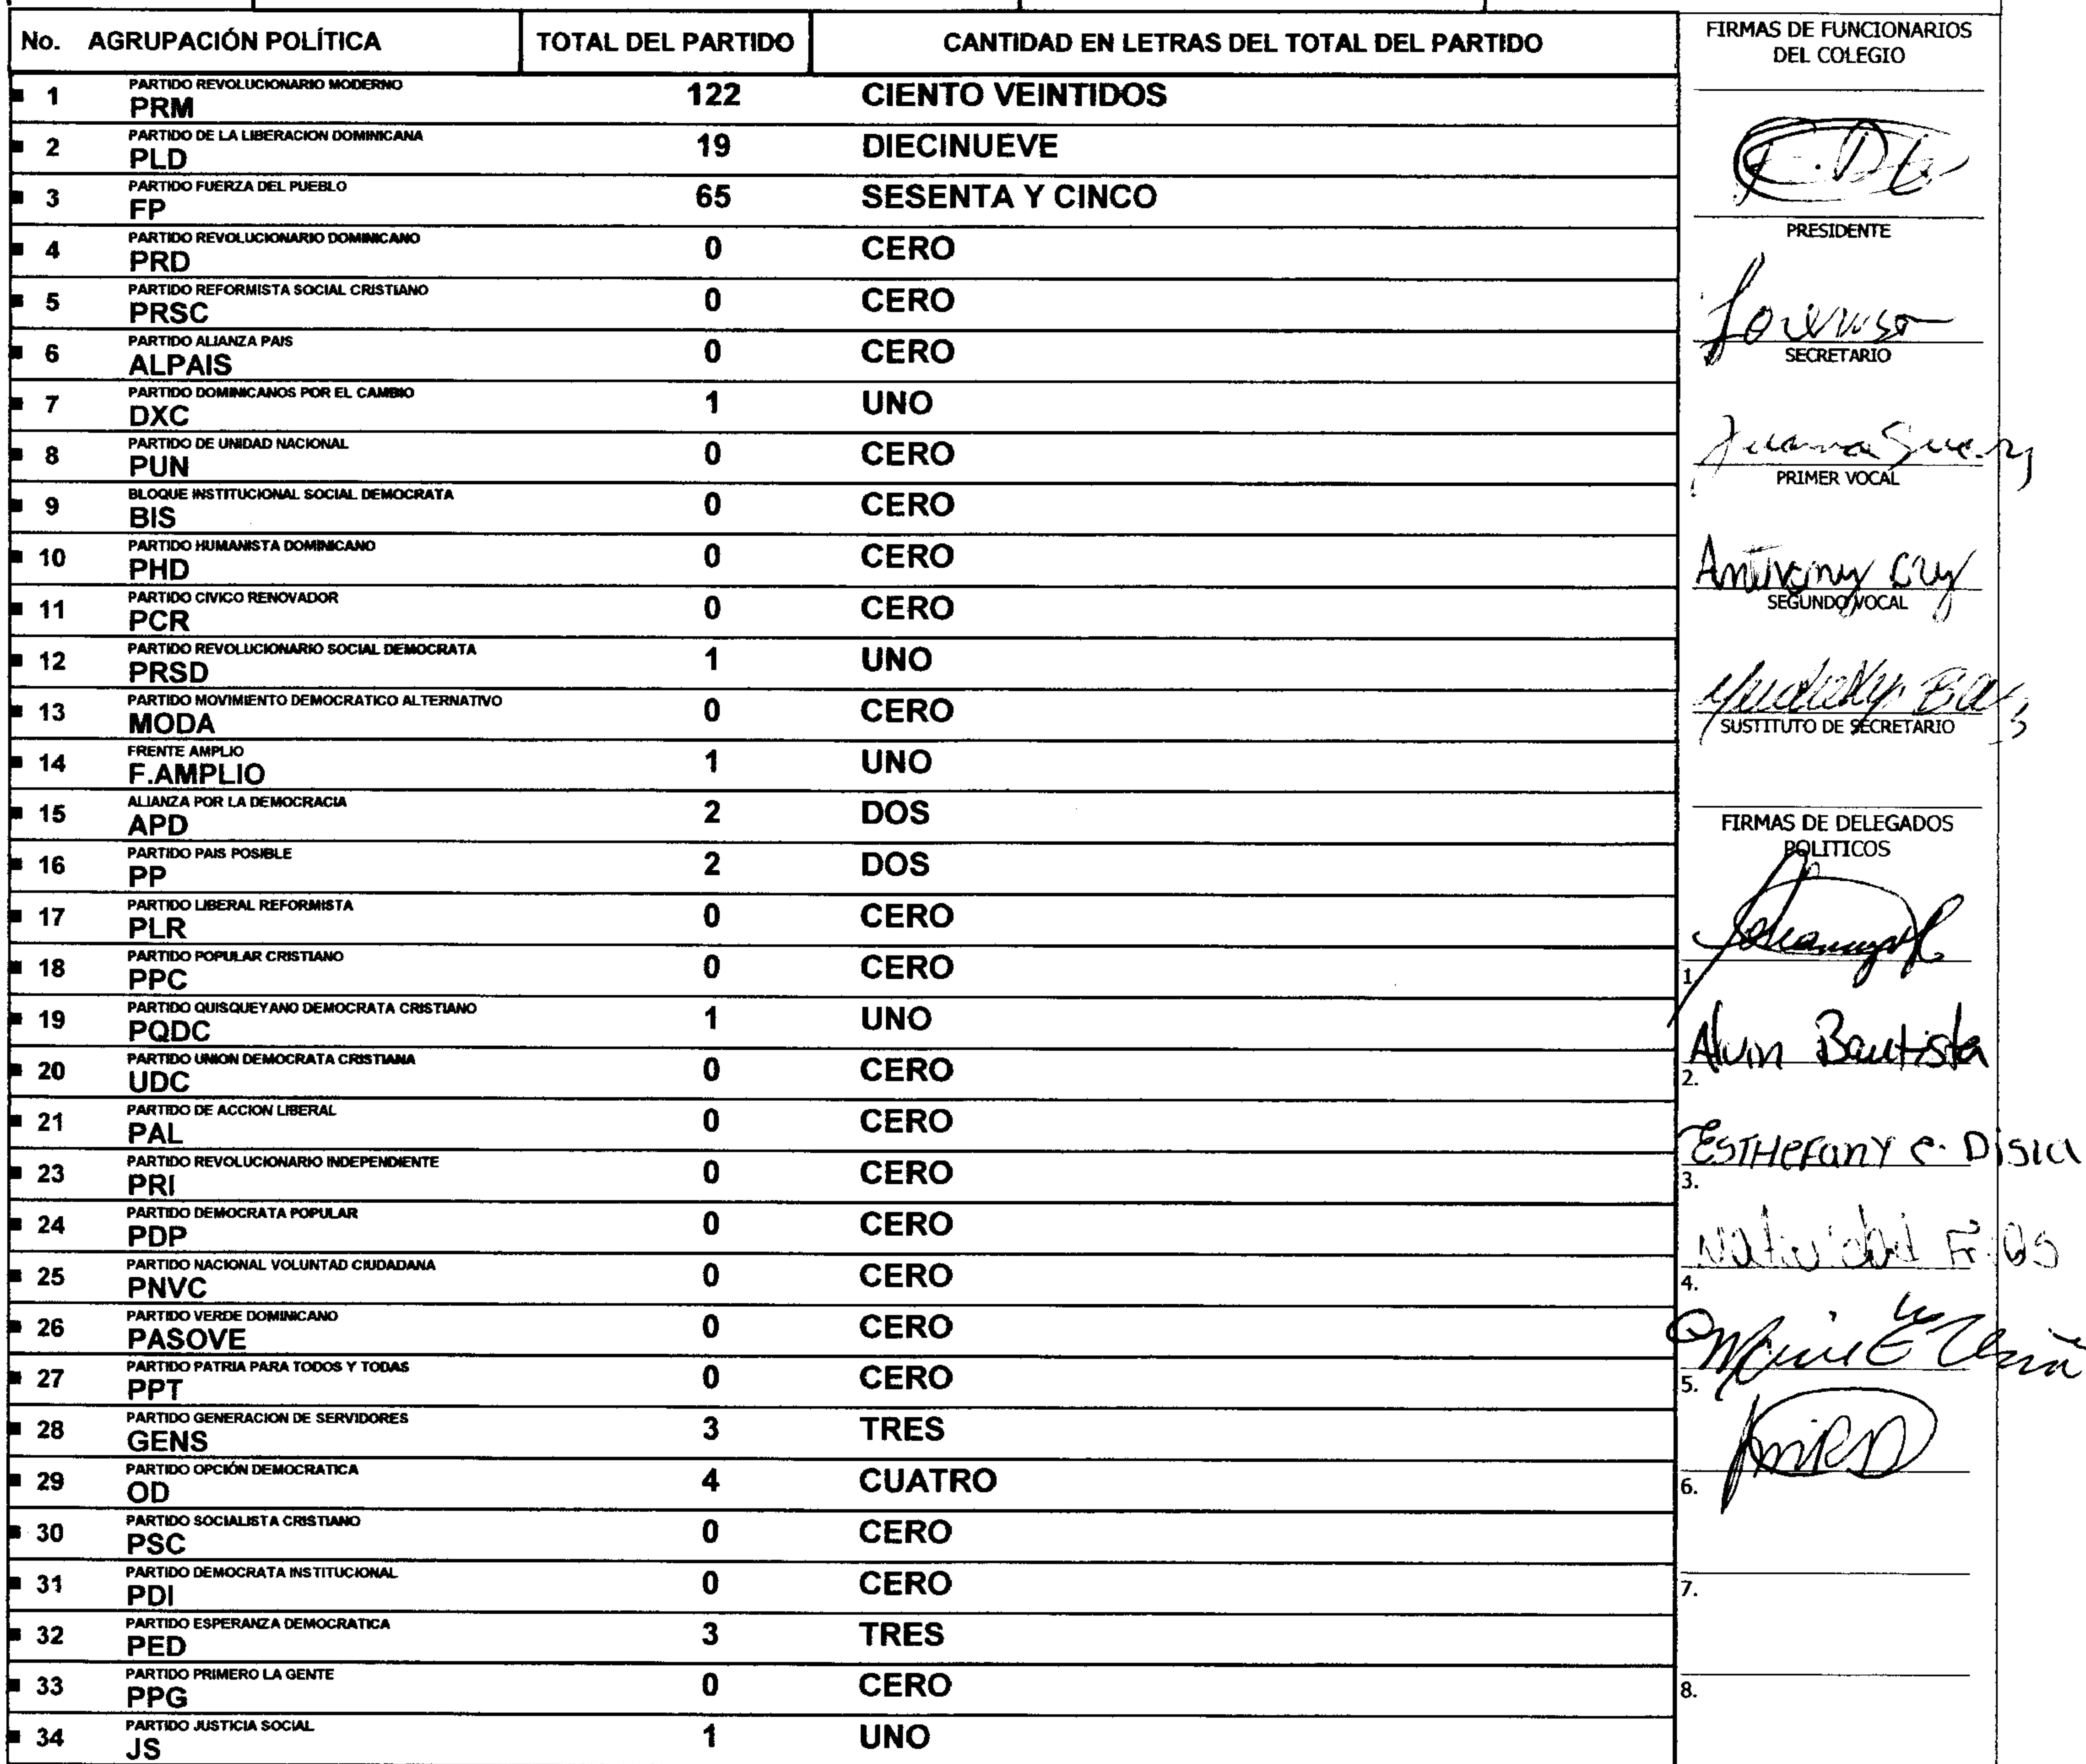 No. AGRUPACIÓN POLÍTICA TOTAL DEL PARTIDO CANTIDAD EN LETRAS DEL TOTAL DEL PARTIDO
PARTIDO REVOLUCIONARIO MODERNO
1 PRM 122 CIENTO VEINTIDOS
PARTIDO DE LA LIBERACION DOMINICANA
2 PLD 19 DIECINUEVE
PARTIDO FUERZA DEL PUEBLO
3 FP 65 SESENTA Y CINCO
PARTIDO REVOLUCIONARIO DOMINICANO
4 PRD 0 CERO
PARTIDO REFORMISTA SOCIAL CRISTIANO
5 PRSC 0 CERO
PARTIDO ALIANZA PAIS
6 ALPAIS 0 CERO
PARTIDO DOMINICANOS POR EL CAMBIO
7 DXC 1 UNO
PARTIDO DE UNIDAD NACIONAL
8 PUN 0 CERO
BLOQUE INSTITUCIONAL SOCIAL DEMOCRATA
9 BIS 0 CERO
PARTIDO HUMANISTA DOMINICANO
10 PHD 0 CERO
PARTIDO CIVICO RENOVADOR
11 PCR 0 CERO
PARTIDO REVOLUCIONARIO SOCIAL DEMOCRATA
12 PRSD 1 UNO
PARTIDO MOVIMIENTO DEMOCRATICO ALTERNATIVO
13 MODA 0 CERO
FRENTE AMPLIO
14 F.AMPLIO 1 UNO
ALIANZA POR LA DEMOCRACIA
15 APD 2 DOS
PARTIDO PAIS POSIBLE
16 PP 2 DOS
PARTIDO LIBERAL REFORMISTA
17 PLR 0 CERO
PARTIDO POPULAR CRISTIANO
18 PPC 0 CERO
PARTIDO QUISQUEYANO DEMOCRATA CRISTIANO
19 PQDC 1 UNO
PARTIDO UNION DEMOCRATA CRISTIANA
20 UDC 0 CERO
PARTIDO DE ACCION LIBERAL
21 PAL 0 CERO
PARTIDO REVOLUCIONARIO INDEPENDIENTE
23 PRI 0 CERO
PARTIDO DEMOCRATA POPULAR
24 PDP 0 CERO
PARTIDO NACIONAL VOLUNTAD CIUDADANA
25 PNVC 0 CERO
PARTIDO VERDE DOMINICANO
26 PASOVE 0 CERO
PARTIDO PATRIA PARA TODOS Y TODAS
27 PPT 0 CERO
PARTIDO GENERACION DE SERVIDORES
28 GENS 3 TRES
PARTIDO OPCIÓN DEMOCRATICA
29 OD 4 CUATRO
PARTIDO SOCIALISTA CRISTIANO
30 PSC 0 CERO
PARTIDO DEMOCRATA INSTITUCIONAL
31 PDI 0 CERO
PARTIDO ESPERANZA DEMOCRATICA
32 PED 3 TRES
PARTIDO PRIMERO LA GENTE
33 PPG 0 CERO
PARTIDO JUSTICIA SOCIAL
34 JS 1 UNO
FIRMAS DE FUNCIONARIOS
DEL COLEGIO
PRESIDENTE
SECRETARIO
Juana
PRIMER VOCAL
SEGUNDO VOCAL
SUSTITUTO DE SECRETARIO
FIRMAS DE DELEGADOS
POLITICOS
1.
Alvin Bautista
2.
ESTHEFANY C. Disla
3.
Natividad
4.
5.
6.
7.
8.